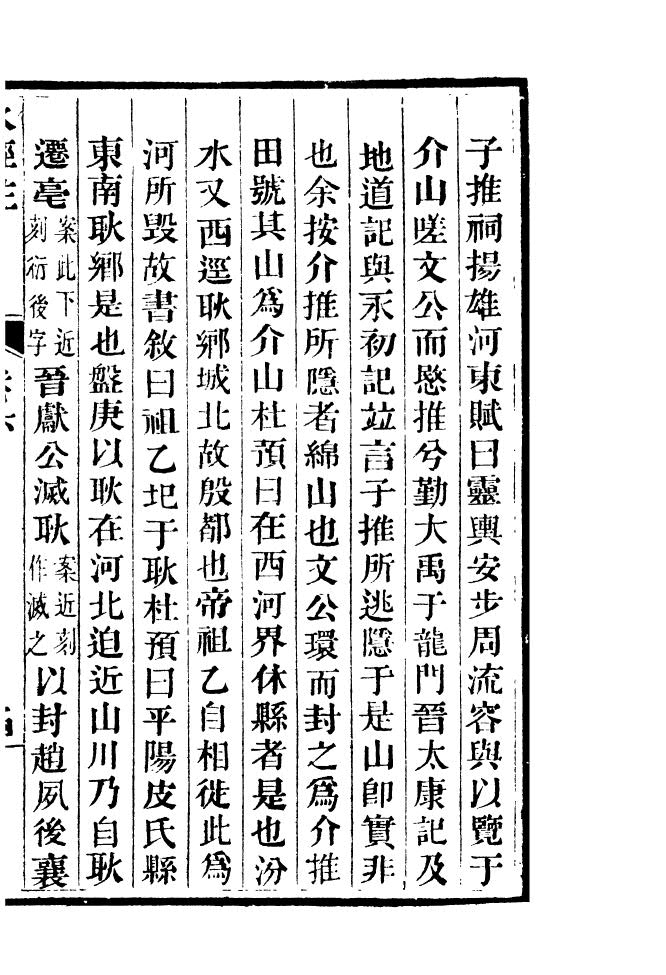 子推祠揚雄河東賦曰靈輿安步周流容與以覽于
介山嗟文公而愍推兮勤大禹于龍門晉太康記及
地道記與永初記竝言子推所逃隱于是山卽實非
也余按介推所隱者綿山也文公環而封之爲介推
田號其山爲介山杜預曰在西河界休縣者是也汾
水又西逕耿鄉城北故殷都也帝祖乙自相徙此爲
河所毀故書敘曰祖乙圮于耿杜預曰平陽皮氏縣
東南耿鄉是也盤庚以耿在河北迫近山川乃自耿
遷亳案此下近刻衍後字晉獻公滅耿案近刻作滅之以封趙夙後襄
水經注
卷六